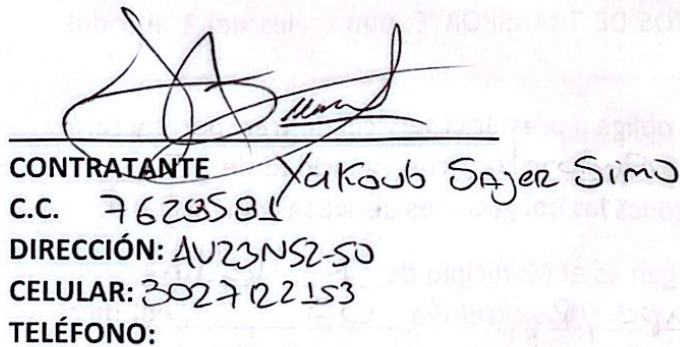 CONTRATANTE Yakoub Sajer Simo
C.C. 7629591
DIRECCIÓN: AV23N52-50
CELULAR: 3027122153
TELÉFONO: